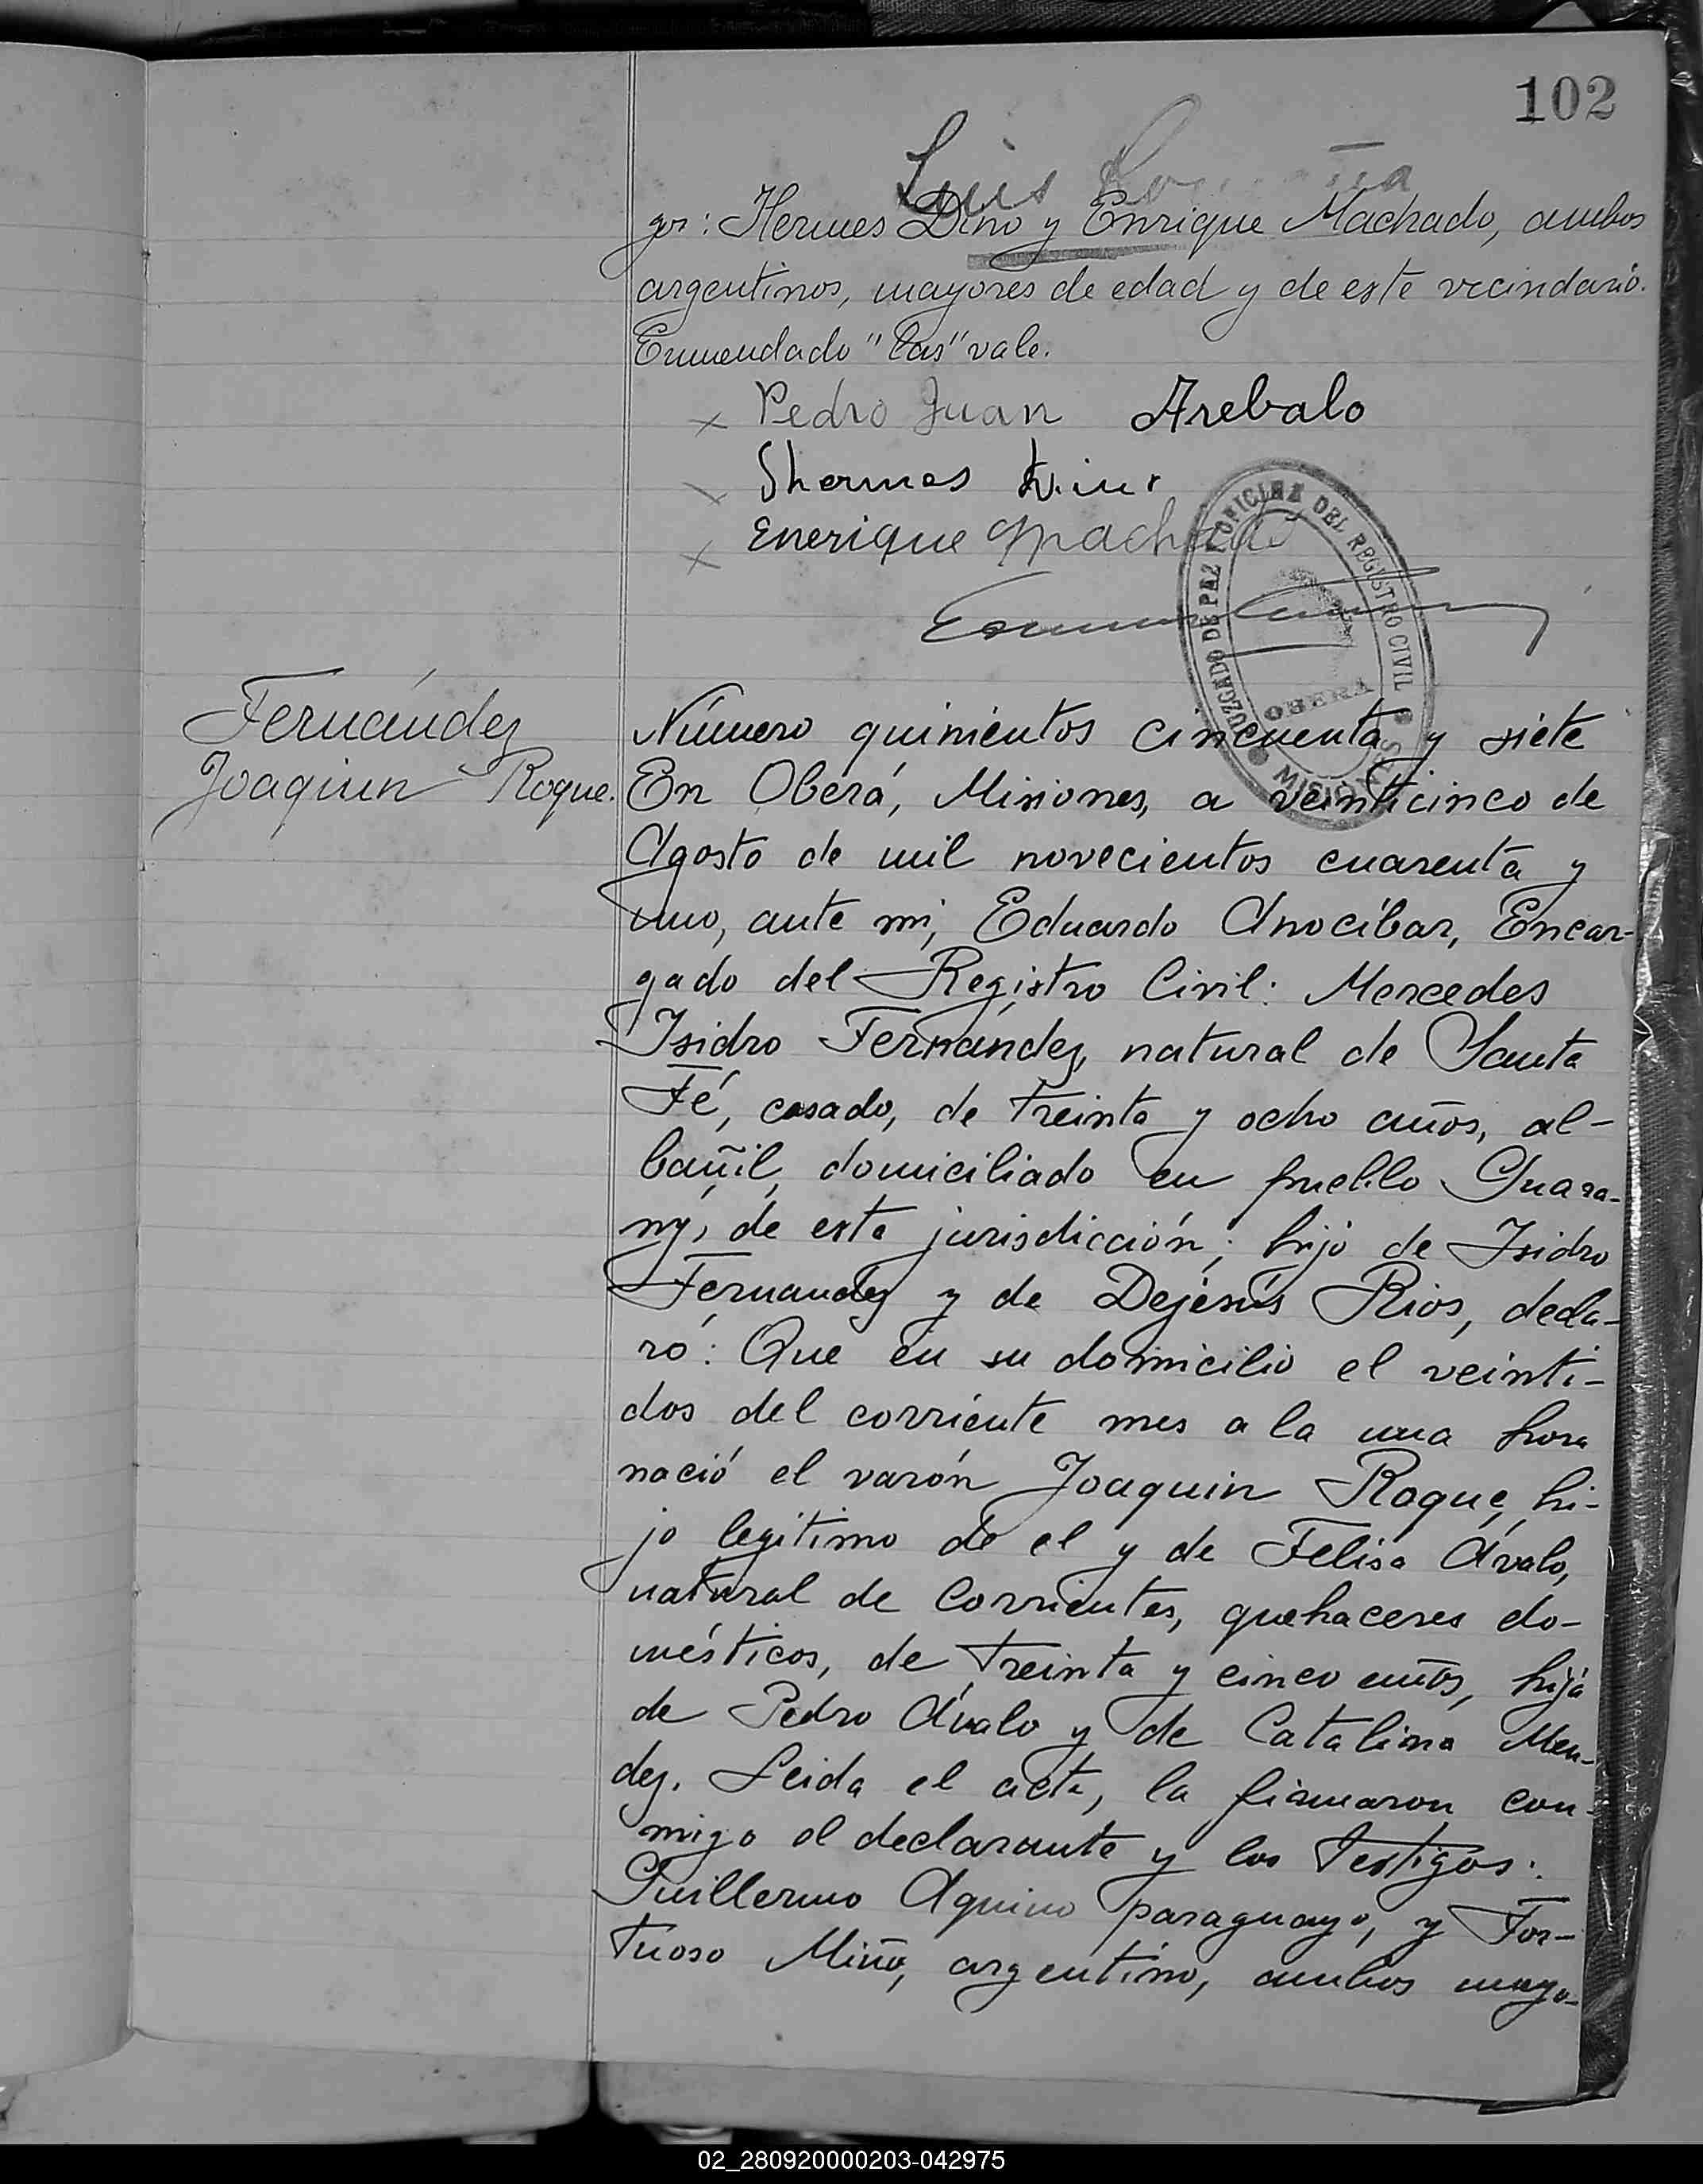 102
Luis
gos: Hermes Dino y Enrique Machado, ambos
argentinos, mayores de edad y de este vecindario.
Enmendado "las" vale.
x Pedro Juan Arebalo
x Shermes
x Enerique Machado
JUZGADO DE PAZ Y OFICINA DEL REGISTRO CIVIL
OBERA
MISIONES
Fernández
Joaquin Roque.
Número quinientos cincuenta y siete
En Oberá, Misiones, a veinticinco de
Agosto de mil novecientos cuarenta y
uno, ante mi, Eduardo Anocíbar, Encar-
gado del Registro Civil: Mercedes
Isidro Fernández, natural de Santa
Fé, casado, de treinta y ocho años, al-
bañil, domiciliado en pueblo Guara-
ny, de esta jurisdicción; hijo de Isidro
Fernandez y de Dejesús Rios, decla-
ró: Que en su domicilio el veinti-
dos del corriente mes a la una hora
nació el varón Joaquin Roque, hi-
jo legitimo de el y de Felisa Ávalo,
natural de Corrientes, quehaceres do-
mésticos, de treinta y cinco años, hija
de Pedro Ávalo y de Catalina Men-
dez. Leida el acta, la firmaron con-
migo el declarante y los testigos:
Guillermo Aquino paraguayo, y For-
tuoso Miño, argentino, ambos mayo-
02_280920000203-042975